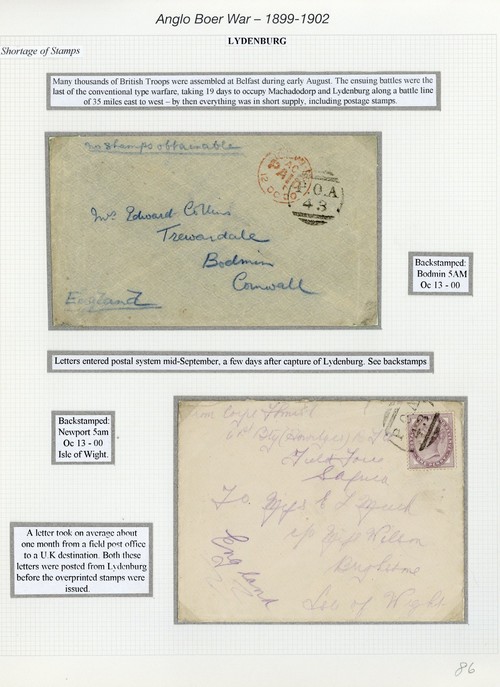 Anglo Boer War – 1899-1902
LYDENBURG
Shortage of Stamps
Many thousands of British Troops were assembled at Belfast during early August. The ensuing battles were the
last of the conventional type warfare, taking 19 days to occupy Machadodorp and Lydenburg along a battle line
of 35 miles east to west – by then everything was in short supply, including postage stamps.
No Stamps obtainable
PAID
12 OC 00
P.O.A
43
Mrs Edward Collins
Trewardale
Bodmin
Cornwall
England
Backstamped:
Bodmin 5AM
Oc 13 - 00
Letters entered postal system mid-September, a few days after capture of Lydenburg. See backstamps
Backstamped:
Newport 5am
Oc 13 - 00
Isle of Wight.
From Corpl
Field Force
S Africa
To. Miss E L
c/o Miss Wilson
Brighstone
Isle of Wight
England
A letter took on average about
one month from a field post office
to a U.K destination. Both these
letters were posted from Lydenburg
before the overprinted stamps were
issued.
86